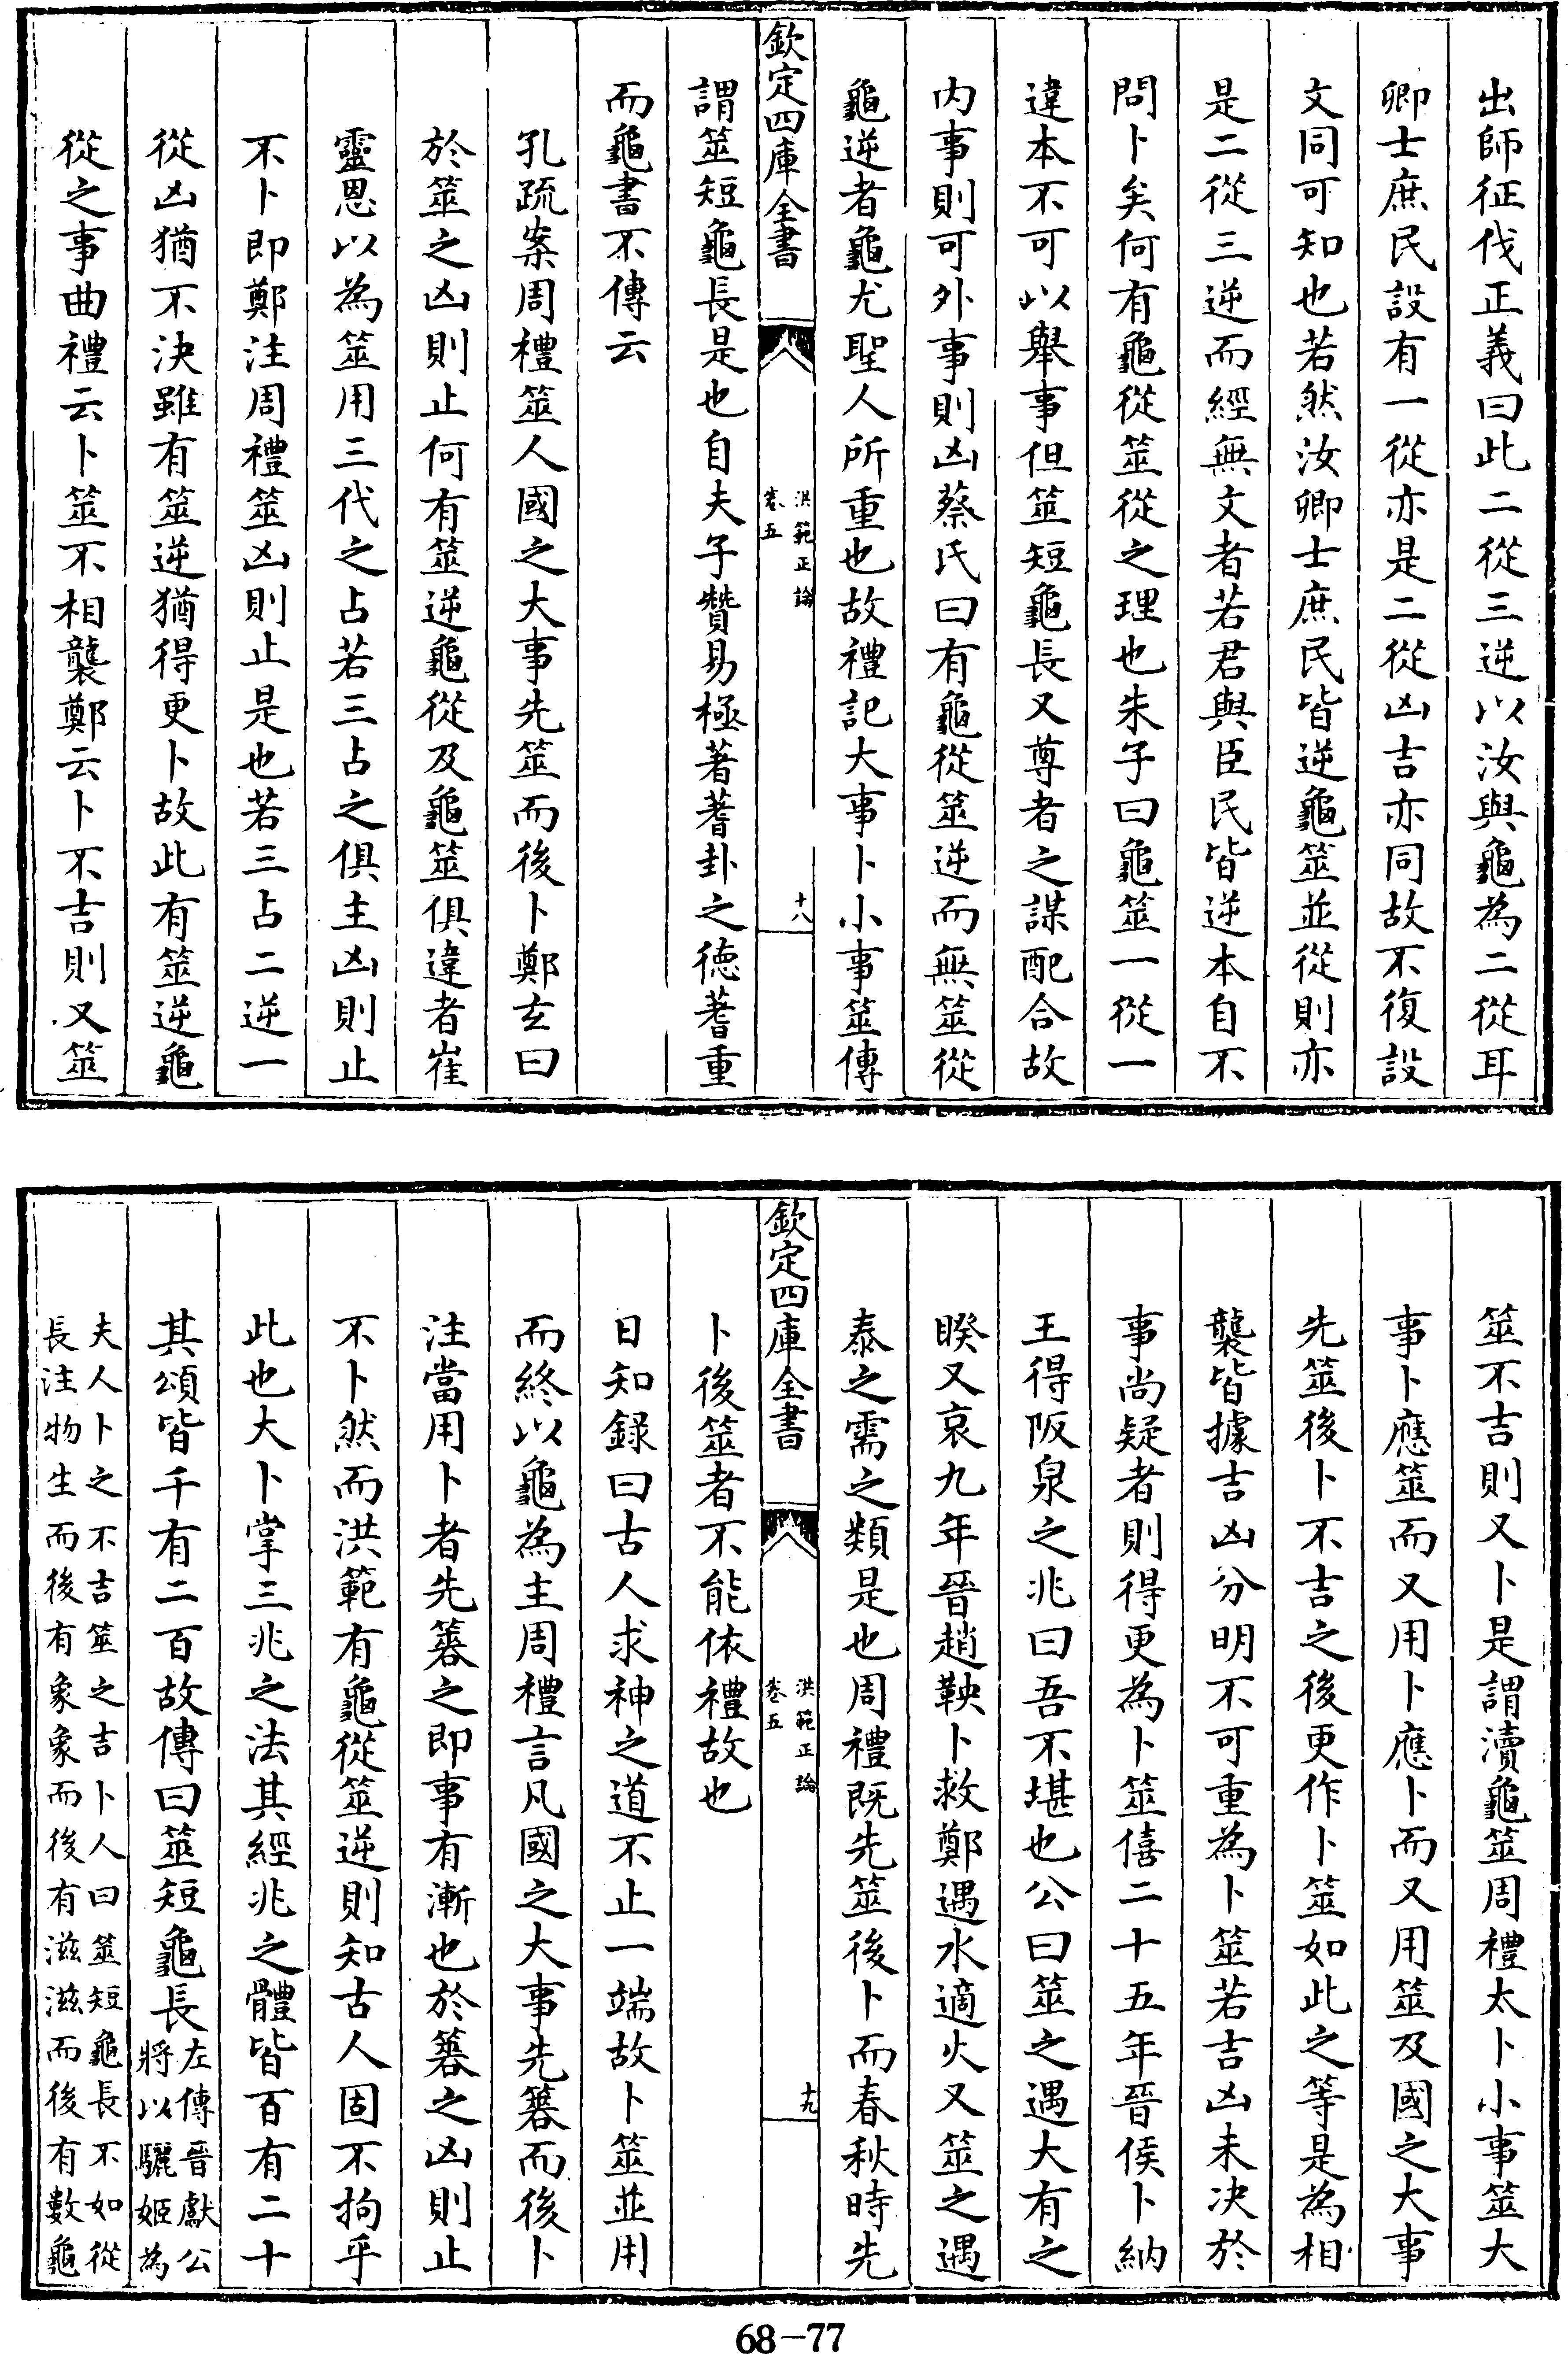 出師征伐正義曰此二從三逆以汝與龜為二從耳
卿士庶民設有一從亦是二從凶吉亦同故不復設
文同可知也若然汝卿士庶民皆逆龜筮並從則亦
是二從三逆而經無文者若君與臣民皆逆本自不
問卜矣何有龜從筮從之理也朱子曰龜筮一從一
違本不可以舉事但筮短龜長又尊者之謀配合故
内事則可外事則凶蔡氏曰有龜從筮逆而無筮從
龜逆者龜尤聖人所重也故禮記大事卜小事筮傳
欽定四庫全書
洪範正論
卷五
十八
謂筮短龜長是也自夫子贊易極著蓍卦之德蓍重
而龜書不傳云
孔疏案周禮筮人國之大事先筮而後卜鄭玄曰
於筮之凶則止何有筮逆龜從及龜筮俱違者崔
靈恩以為筮用三代之占若三占之俱主凶則止
不卜即鄭注周禮筮凶則止是也若三占二逆一
從凶猶不決雖有筮逆猶得更卜故此有筮逆龜
從之事曲禮云卜筮不相襲鄭云卜不吉則又筮
筮不吉則又卜是謂瀆龜筮周禮太卜小事筮大
事卜應筮而又用卜應卜而又用筮及國之大事
先筮後卜不吉之後更作卜筮如此之等是為相
襲皆據吉凶分明不可重為卜筮若吉凶未決於
事尚疑者則得更為卜筮僖二十五年晉侯卜納
王得阪泉之兆曰吾不堪也公曰筮之遇大有之
睽又哀九年晉趙鞅卜救鄭遇水適火又筮之遇
泰之需之類是也周禮既先筮後卜而春秋時先
欽定四庫全書
洪範正論
卷五
十九
卜後筮者不能依禮故也
日知録曰古人求神之道不止一端故卜筮並用
而終以龜為主周禮言凡國之大事先簭而後卜
注當用卜者先簭之即事有漸也於簭之凶則止
不卜然而洪範有龜從筮逆則知古人固不拘乎
此也大卜掌三兆之法其經兆之體皆百有二十
其頌皆千有二百故傳曰筮短龜長左傳晉獻公
將以驪姬為
夫人卜之不吉筮之吉卜人曰筮短龜長不如從
長注物生而後有象象而後有滋滋而後有數龜
68-77